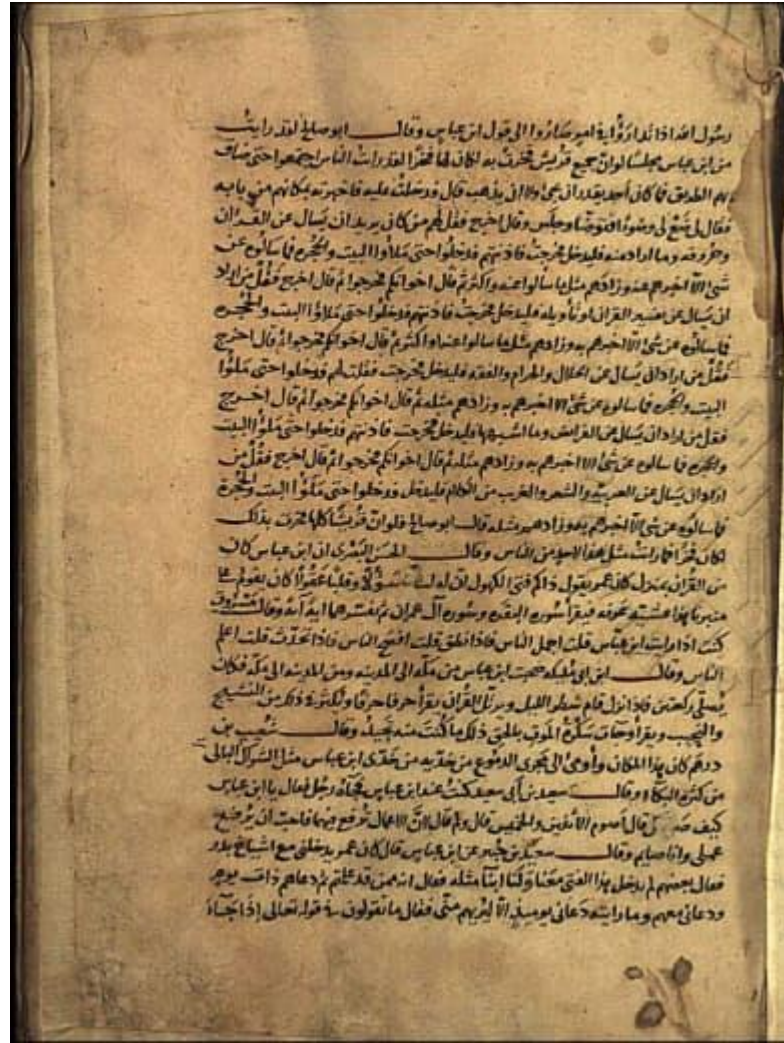 رسول الله اذا تدارؤا في امر صاروا الى قول ابن عباس وقال ابو صالح لقد رايت
من ابن عباس مجلسا لو ان جميع قريش فخرت به لكان لها فخرا لقد رايت الناس اجتمعوا حتى ضاق
بهم الطريق فما كان أحد يقدر ان يجئ ولا ان يذهب قال فدخلت عليه فاخبرته بمكانهم من بابه
فقال لي ضع لي وضوءا فتوضا وجلس وقال اخرج فقل لهم من كان يريد ان يسال عن القران
وحروفه وما اراد منه فليدخل فخرجت فاذنتهم فدخلوا حتى ملاوا البيت والحجره فما سالوه عن
شئ الا اخبرهم عنه وزادهم مثل ما سالوا عنه واكثر ثم قال اخوانكم فخرجوا ثم قال اخرج فقل من اراد
ان يسال عن تفسير القران او تأويله فليدخل فخرجت فاذنتهم فدخلوا حتى ملاوا البيت والحجره
فما سالوه عن شئ الا اخبرهم به وزادهم مثل ما سالوا عنه او اكثر ثم قال اخوانكم فخرجوا ثم قال اخرج
فقل من اراد ان يسال عن الحلال والحرام والفقه فليدخل فخرجت فقلت لهم فدخلوا حتى ملوا
البيت والحجره فما سالوه عن شئ الا اخبرهم به وزادهم مثله ثم قال اخوانكم فخرجوا ثم قال اخرج
فقل من اراد ان يسال عن الفرائض وما اشبهها فليدخل فخرجت فاذنتهم فدخلوا حتى ملوا البيت
والحجره فما سالوه عن شئ الا اخبرهم به وزادهم مثله ثم قال اخوانكم فخرجوا ثم قال اخرج فقل من
اراد ان يسال عن العربيه والشعر والغريب من الكلام فليدخل فدخلوا حتى ملوا البيت والحجرة
فما سالوه عن شئ الا اخبرهم به وزادهم مثله قال ابو صالح فلو ان قريشا كلها فخرت بذلك
لكان فخرا فما رايت مثل هذا لاحد من الناس وقال الحسن البصري ان ابن عباس كان
من القران بمنزل كان عمر يقول ذاكم فتى الكهول ان له لسانا سؤلا وقلبا عقولا كان يقوم على
منبرنا هذا عشية عرفه فيقرأ سوره البقره وسوره آل عمران ثم يفسرهما اية آية وقال مسروق
كنت اذا رايت ابن عباس قلت اجمل الناس فاذا نطق قلت افصح الناس فاذا تحدث قلت اعلم
الناس وقال ابن ابي مليكه صحبت ابن عباس من مكه الى المدينه ومن المدينه الى مكه فكان
يصلي ركعتين فاذا نزل قام شطر الليل ويرتل القران يقرأ حرفا حرفا ويكثر في ذلك من النشيج
والنحيب ويقرأ وجاءت سكرة الموت بالحق ذلك ما كنت منه تحيد وقال شعيب بن
درهم كان هذا المكان وأومئ الى مجرى الدموع من خديه من خدى ابن عباس مثل الشراك البالى
من كثرة البكاء وقال سعيد بن أبي سعيد كنت عند ابن عباس فجاءه رجل فقال يا ابن عباس
كيف قال أصوم الاثنين والخميس قال ولم قال لان الاعمال ترفع فيهما فاحب ان يرفع
عملى وانا صايم وقال سعيد بن جبير عن ابن عباس قال كان عمر يدخلنى مع اشياخ بدر
فقال بعضهم لم يدخل هذا الفتى معنا ولنا ابنا مثله فقال انه ممن قد علمتم ثم دعاهم ذات يوم
ودعانى معهم وما رايته دعانى يوميذ الا ليريهم منى فقال ما تقولون في قوله تعالى إذا جاء